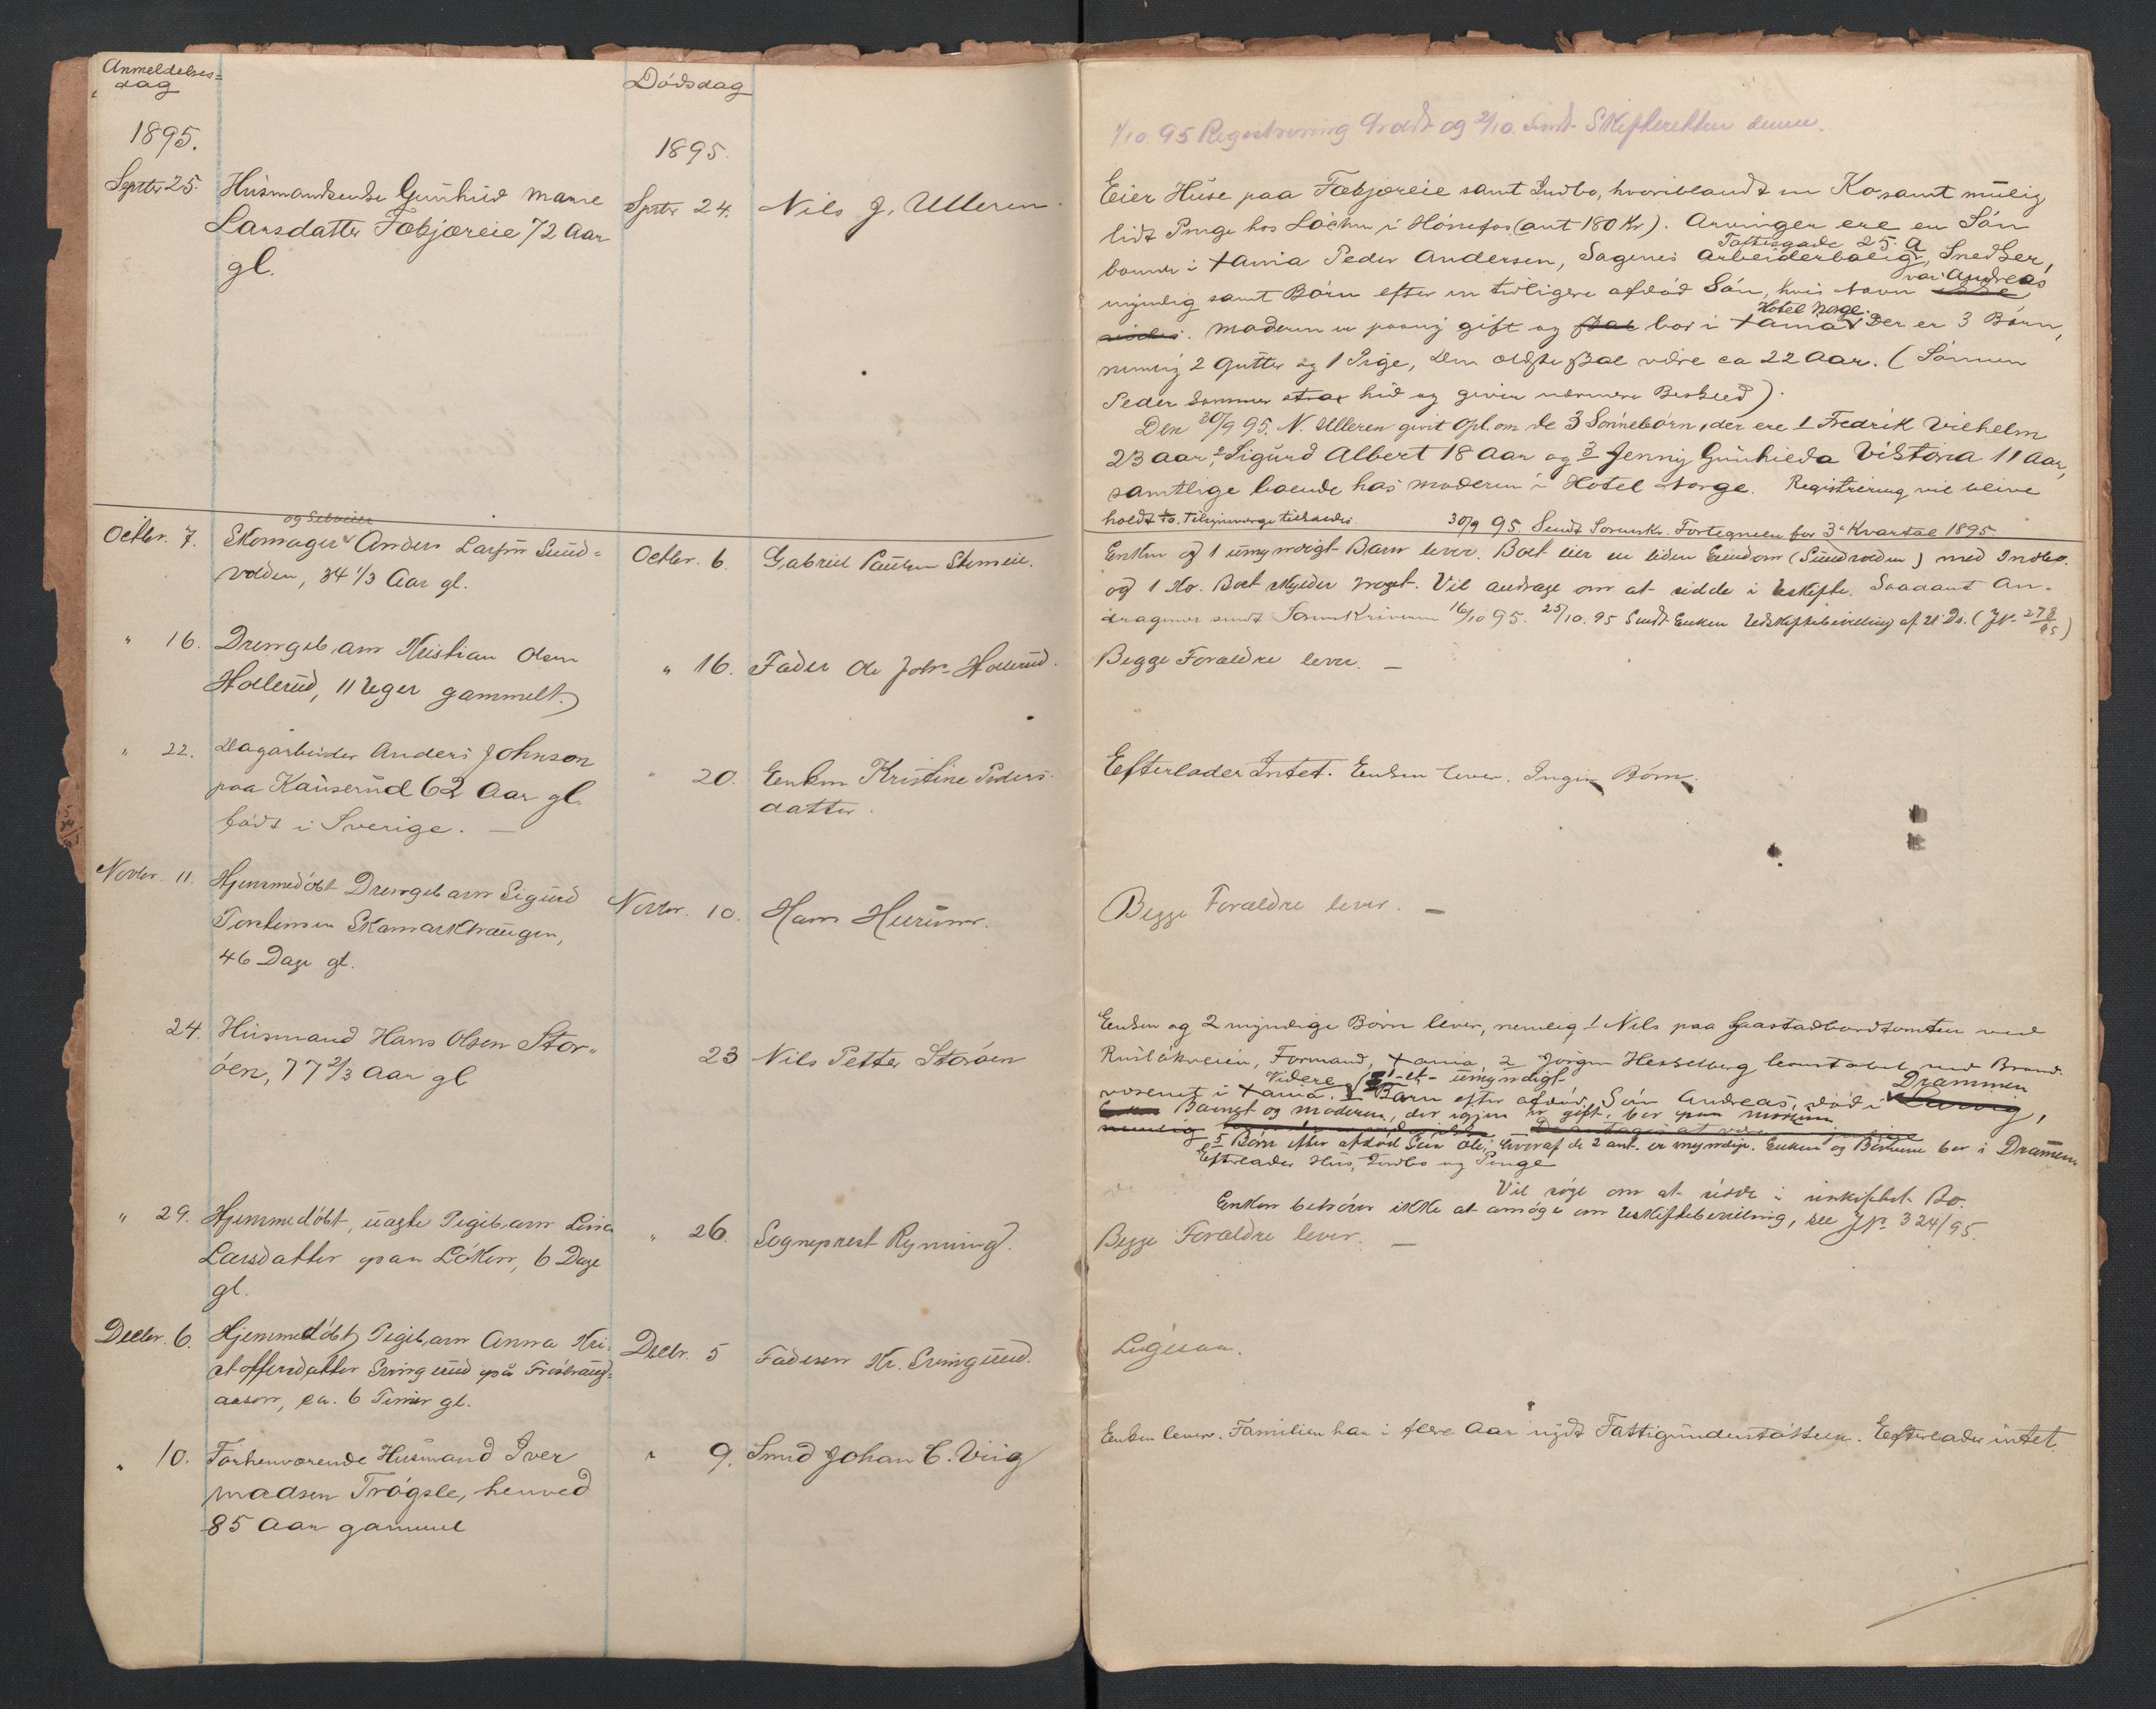 Anmeldelses=
dag
Dödsdag
1895.
1895.
Septbr 25. Husmandsenke Gunhild Marie
Larsdatter Fækjæreie 72 Aar
gl.
Septbr 24. Nils J. Ulleren.
1/10 95 Registrering holdt og 2/10. sendt Skifteretten denne.
Eier Huse paa Fækjæreie samt Indbo, hvoriblandt en Ko samt mulig
lidt Penge hos Löchen i Hönefos (ant 180 Kr). Arvinger ere en Sön
boende i Xania Peder Andersen, Sagenes Arbeiderbolig, Toftesgade 25. A Snedker,
myndig samt Börn efter en tidligere afdöd Sön, hvis Navn var Andreas
Moderen er paany gift og bor i Xania Hotel Norge. Der er 3 Börn,
nemlig 2 Gutter og 1 Pige, den ældste skal være ca 22 Aar. (Sönnen
Peder kommer strax hid og giver nærmere Besked).
Den 30/9 95. N. Ulleren givet Opl. om de 3 Sönnebörn, der ere 1 Fredrik Vilhelm
23 Aar, 2 Sigurd Albert 18 Aar og 3 Jenny Gunhilda Viktoria 11 Aar,
samtlige boende hos Moderen i Hotel Norge. Registrering vil blive
holdt 1/10. Tilsynsværge tilkaldes.
30/9 95 Sendt Sorenskr. Fortegnelse for 3die Kvartal 1895.
Octbr. 7. Skomager og Selveier Anders Larsen Sund=
volden, 34 1/3 Aar gl.
Octbr. 6. Gabriel Paulsen Steineie.
Enken og 1 umyndigt Barn lever. Boet eier en liden Eiendom (Sundvolden) med Indbo
og 1 Ko. Boet skylder noget. Vil andrage om at sidde i Uskifte. Saadant An-
dragende sendt Sorenskriveren 16/10 95. 25/10. 95 Sendt Enken Uskiftebevilling af 21 Ds. (J№ 278/95)
" 16. Drengebarn Kristian Olsen
Hollerud, 11 Uger gammelt.
" 16. Fader Ole Johs. Hollerud.
Begge Forældre lever. —
" 22. Dagarbeider Anders Johnson
paa Kauserud 62 Aar gl.
födt i Sverige. —
" 20. Enken Kristine Peders-
datter.
Efterlader Intet. Enken lever. Ingen Börn.
Novbr. 11. Hjemmedöbt Drengebarn Sigurd
Torstensen Skamarkhaugen,
46 Dage gl.
Novbr. 10. Hans Hurum.
Begge Forældre lever. —
24. Husmand Hans Olsen Stor-
öen, 77 2/3 Aar gl
23 Nils Petter Storöen
Enken og 2 myndige Börn lever, nemlig 1 Nils paa Gaastadbordtomten ved
Ruslökveien, Formand, Xania, 2 Jörgen Hesselberg konstabel ved Brand-
væsenet i Xania. Videre 1 -et- umyndigt Barn efter afdöd Sön Andreas, död i Drammen
Barnet og Moderen, der igjen er gift, bor paa Modum
5 Börn efter afdöd Sön Ole, hvoraf de 2 ant. er myndige. Enken og Börnene bor i Drammen
Efterlader Hus, Indbo og Penge
Vil söge om at sidde i uskiftet Bo.
Enken behöver ikke at ansöge om Uskiftebevilling, see J№ 324/95.
" 29. Hjemmedöbt, uægte Pigebarn Lina
Larsdatter paa Löken, 6 Dage
gl.
" 26. Sogneprest Rynning.
Begge Forældre lever. —
Decbr. 6. Hjemmedöbt Pigebarn Anna Kri-
stoffersdatter Svingerud paa Fröshaug-
aasen, ca. 6 Timer gl.
Decbr. 5 Faderen Kr. Svingerud.
Ligesaa.
" 10. Forhenværende Husmand Iver
Madsen Trögsle, henved
85 Aar gammel
" 9. Smed Johan C. Viig
Enken lever. Familien har i flere Aar nydt Fattigunderstöttelse. Efterlader intet.